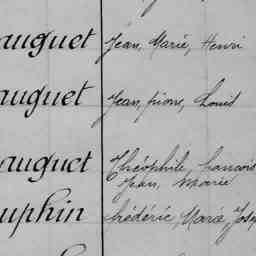 auguet Jean, Marie, Henri
auguet Jean, pierre, Louis
auguet Théophile, francois
Jean, Marie
uphin frédéric, Marie, Jose